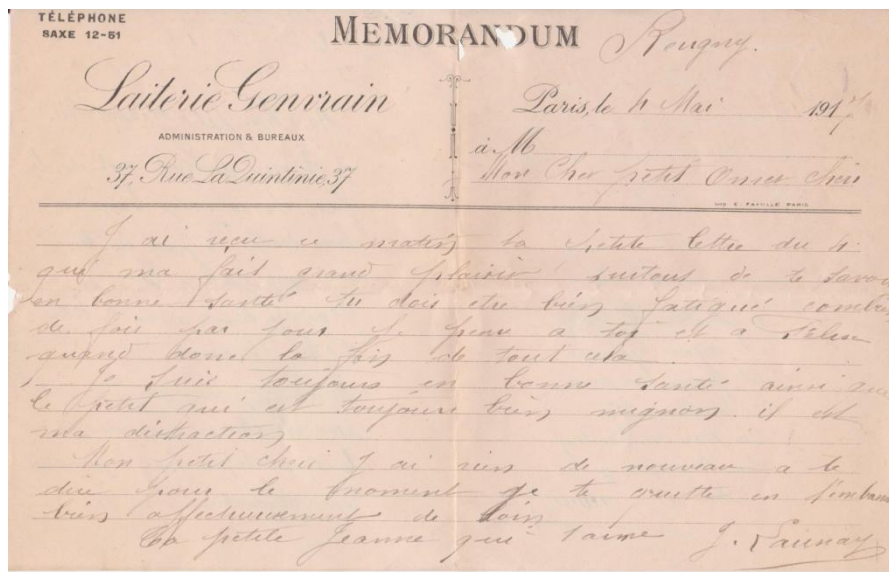 TÉLÉPHONE
SAXE 12-51
MEMORANDUM
Rougny.
Laiterie Genvrain
ADMINISTRATION & BUREAUX
37, Rue La Quintinie, 37
Paris, le 4 Mai 1917
à M
Mon Cher petit Onser Cheri
IMP. E. PAYELLE PARIS
J ai reçu ce matin ta petite lettre du 4.
qui ma fait grand plaisir surtous de te savoir
en bonne santé tu dois etre bien fatigué combien
de fois par jour je pense a toi et a
quand donc la fin de tout cela
Je suis toujours en bonne santé ainsi que
le petit qui est toujours bien mignon. il est
ma distraction
Mon petit cheri J ai rien de nouveau a te
dire pour le moment je te quitte en t'embrass
bien affectueusement de loin
Ta petite Jeanne qui t'aime J. Launay